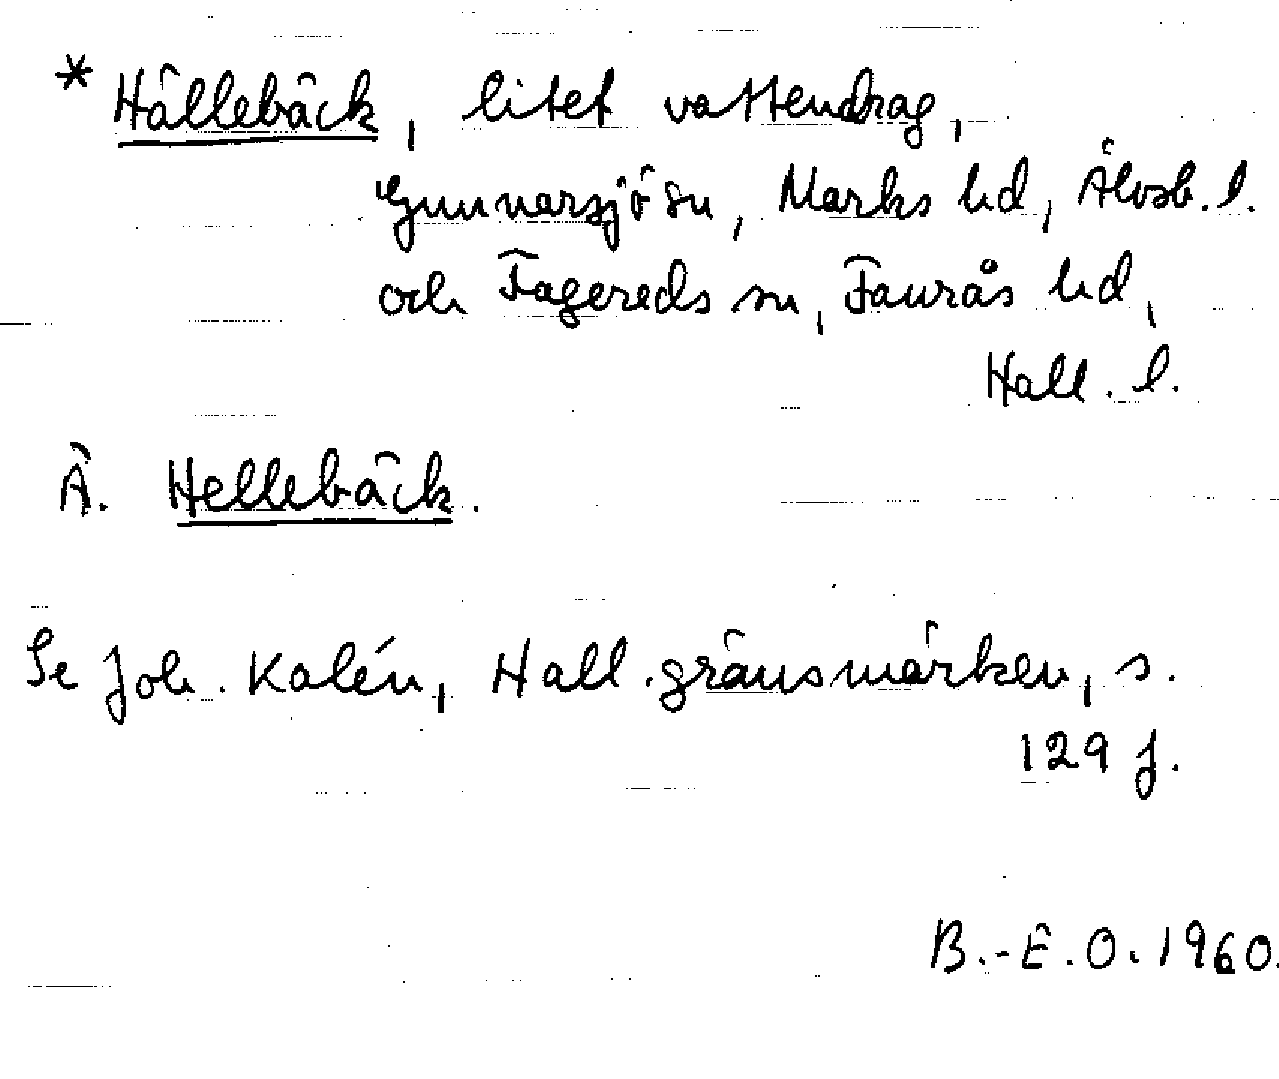 * Hällebäck, litet vattendrag,
Gunnarsjö sn, Marks hd, Älvsb. l.
och Fagereds sn, Faurås hd,
Hall. l.
Ä. Hellebäck.
Se Joh. Kalén, Hall. gränsmärken, s.
129 f.
B.-E.O. 1960.